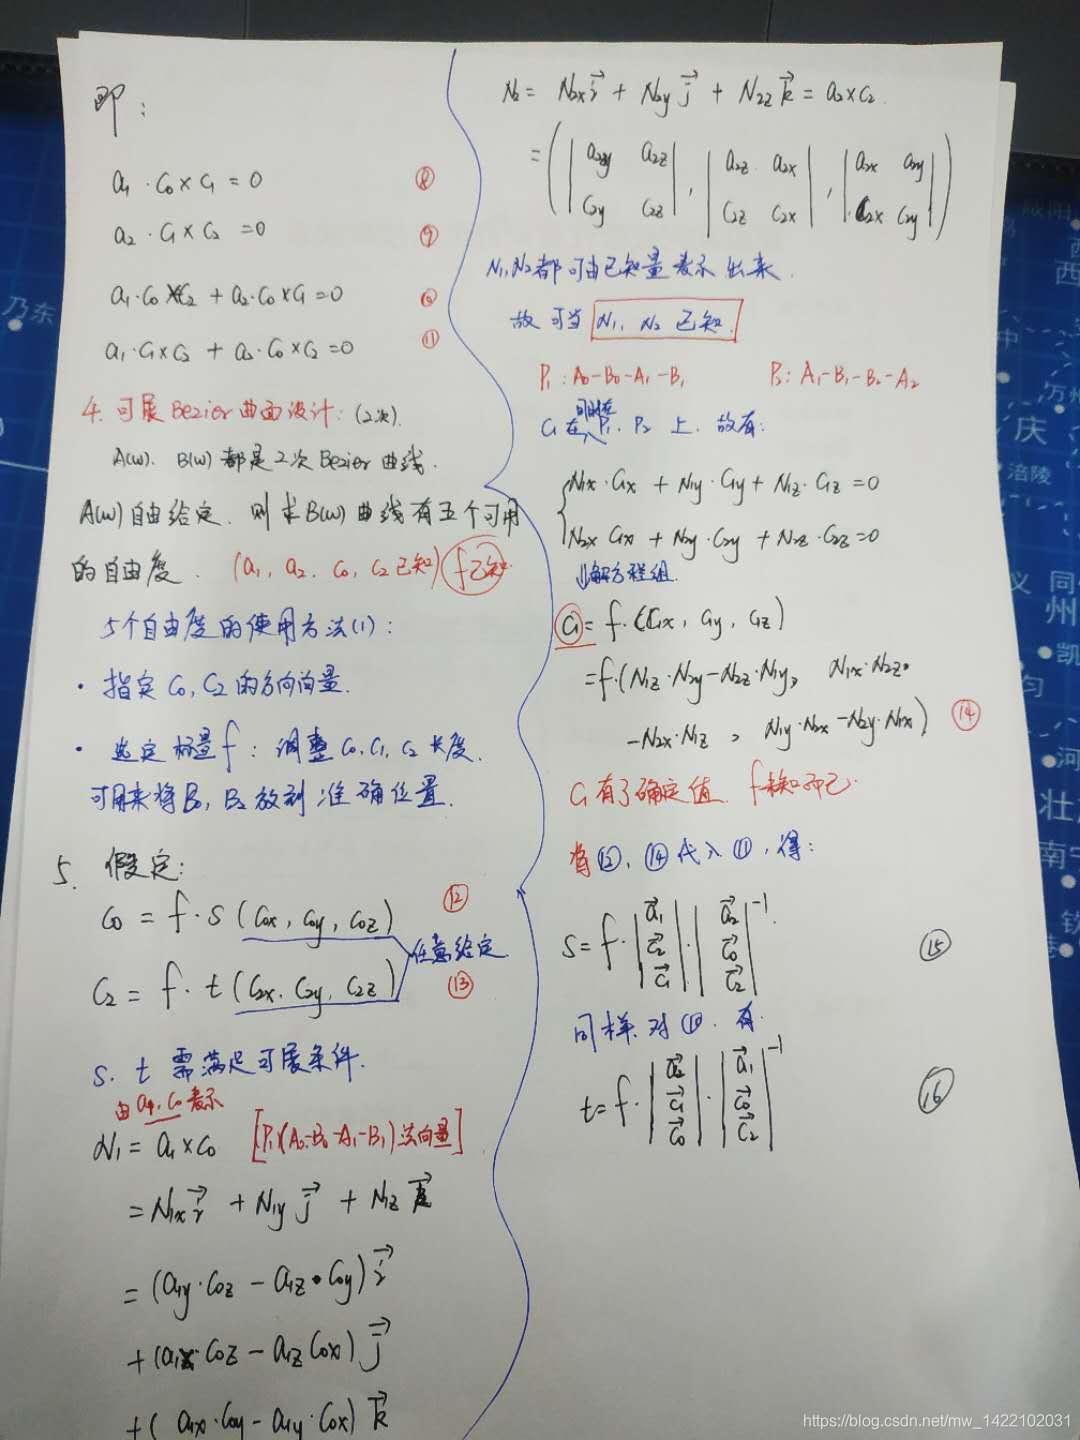 即:
a₁·c₀×c₁=0 ⑧
a₂·c₁×c₂=0 ⑨
a₁·c₀×c₂+a₂·c₀×c₁=0 ⑩
a₁·c₁×c₂+a₂·c₀×c₂=0 ⑪
4.可展Bezier曲面设计:(2次).
A(w).B(w)都是2次Bezier曲线.
A(w)自由给定.则求B(w)曲线有五个可用
的自由度.(a₁,a₂.c₀,c₂已知)(f已知)
5个自由度的使用方法(1):
·指定c₀,c₂的方向向量.
·选定标量f:调整c₀,c₁,c₂长度.
可用来将B₀,B₂放到准确位置.
5.假定:
c₀=f·s(c₀x,c₀y,c₀z) ⑫
任意给定
c₂=f·t(c₂x.c₂y,c₂z) ⑬
s.t需满足可展条件.
由a₁,c₀表示
N₁=a₁×c₀ [P₁(A₀-B₀-A₁-B₁)法向量]
=N₁x i+N₁y j+N₁z k
=(a₁y·c₀z-a₁z·c₀y)i
+(a₁x c₀z-a₁z c₀x)j
+(a₁x·c₀y-a₁y·c₀x)k
N₂=N₂x i+N₂y j+N₂z k=a₂×c₂.
=(|a₂y a₂z|,|a₂z a₂x|,|a₂x a₂y|)
|c₂y c₂z| |c₂z c₂x| |c₂x c₂y|
N₁,N₂都可由已知量表示出来.
故可当N₁,N₂已知.
P₁:A₀-B₀-A₁-B₁ P₂:A₁-B₁-B₂-A₂
c₁同时在P₁.P₂上.故有:
N₁x·c₁x+N₁y·c₁y+N₁z·c₁z=0
N₂x c₁x+N₂y·c₂y+N₂z·c₂z=0
⇓解方程组.
c₁=f·(c₁x,c₁y,c₁z)
=f·(N₁z·N₂y-N₂z·N₁y, N₁x·N₂z
-N₂x·N₁z, N₁y·N₂x-N₂y·N₁x) ⑭
c₁有了确定值.
⑫,⑭代入⑪,得:
s=f·|a₁ c₂ c₁|·|a₂ c₀ c₂|⁻¹. ⑮
同样.对⑩.有.
t=f·|a₂ c₁ c₀|·|a₁ c₀ c₂|⁻¹ ⑯
乃东
咸阳
西
中
万州
庆
涪陵
义
同
州
凯
匀
河
壮
南宁
钦
港
https://blog.csdn.net/mw_1422102031